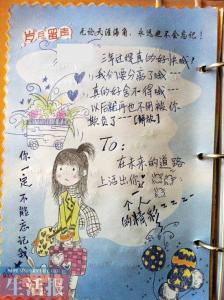 岁月留声
无论天涯海角，永远也不会忘记！
三年过得真的好快哦！
我们要分离了哦…
真的好舍不得哦…
以后就再也不用被你
欺负了……【解放】
To：
在未来的道路
上活出你
个人
的精彩
你一定不能忘记我
生活报